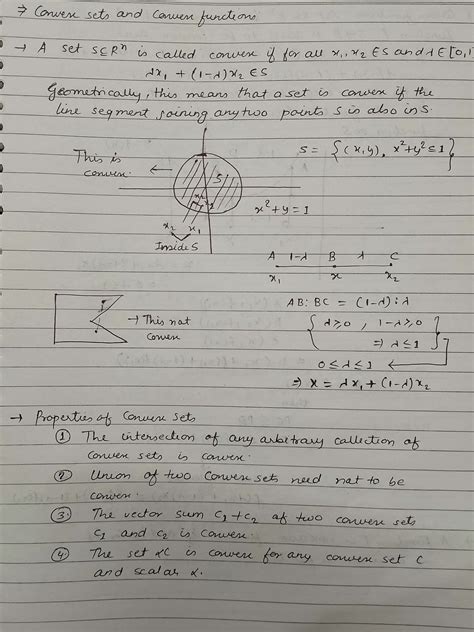 ⇒ Convex sets and Convex functions
→ A set S⊆Rⁿ is called convex if for all x₁, x₂ ∈S and λ∈[0,1
λx₁ + (1-λ)x₂ ∈S
Geometrically, this means that a set is convex if the
line segment joining any two points S is also in S.
This is
convex.
S
S = {(x,y), x²+y²≤1}
x²+y=1
x₂ x₁
Inside S
A 1-λ B λ C
x₁ x x₂
AB:BC = (1-λ):λ
→ This not
convex
{λ≥0, 1-λ≥0
⇒ λ≤1}
0≤λ≤1
⇒ x = λx₁+(1-λ)x₂
→ Properties of Convex Sets
① The intersection of any arbitrary collection of
convex sets is convex.
② Union of two Convex sets need not to be
convex.
③ The vector sum C₁+C₂ of two convex sets
C₁ and C₂ is convex.
④ The set αC is convex for any convex set C
and scalar α.